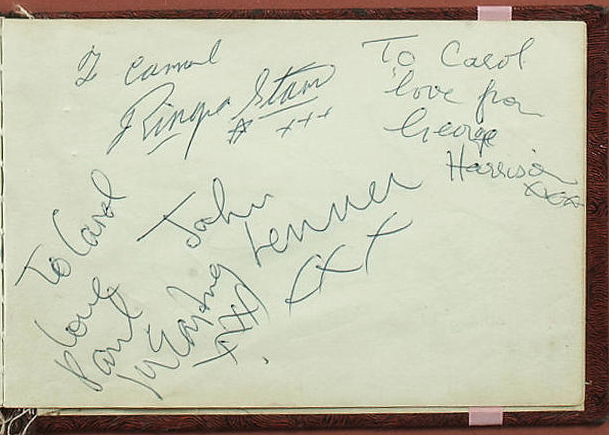 To Carol
Ringo Starr
xxx
To Carol
love from
George
Harrison
xxx
To Carol
love
Paul
McCartney
xxx
John
Lennon
xxx